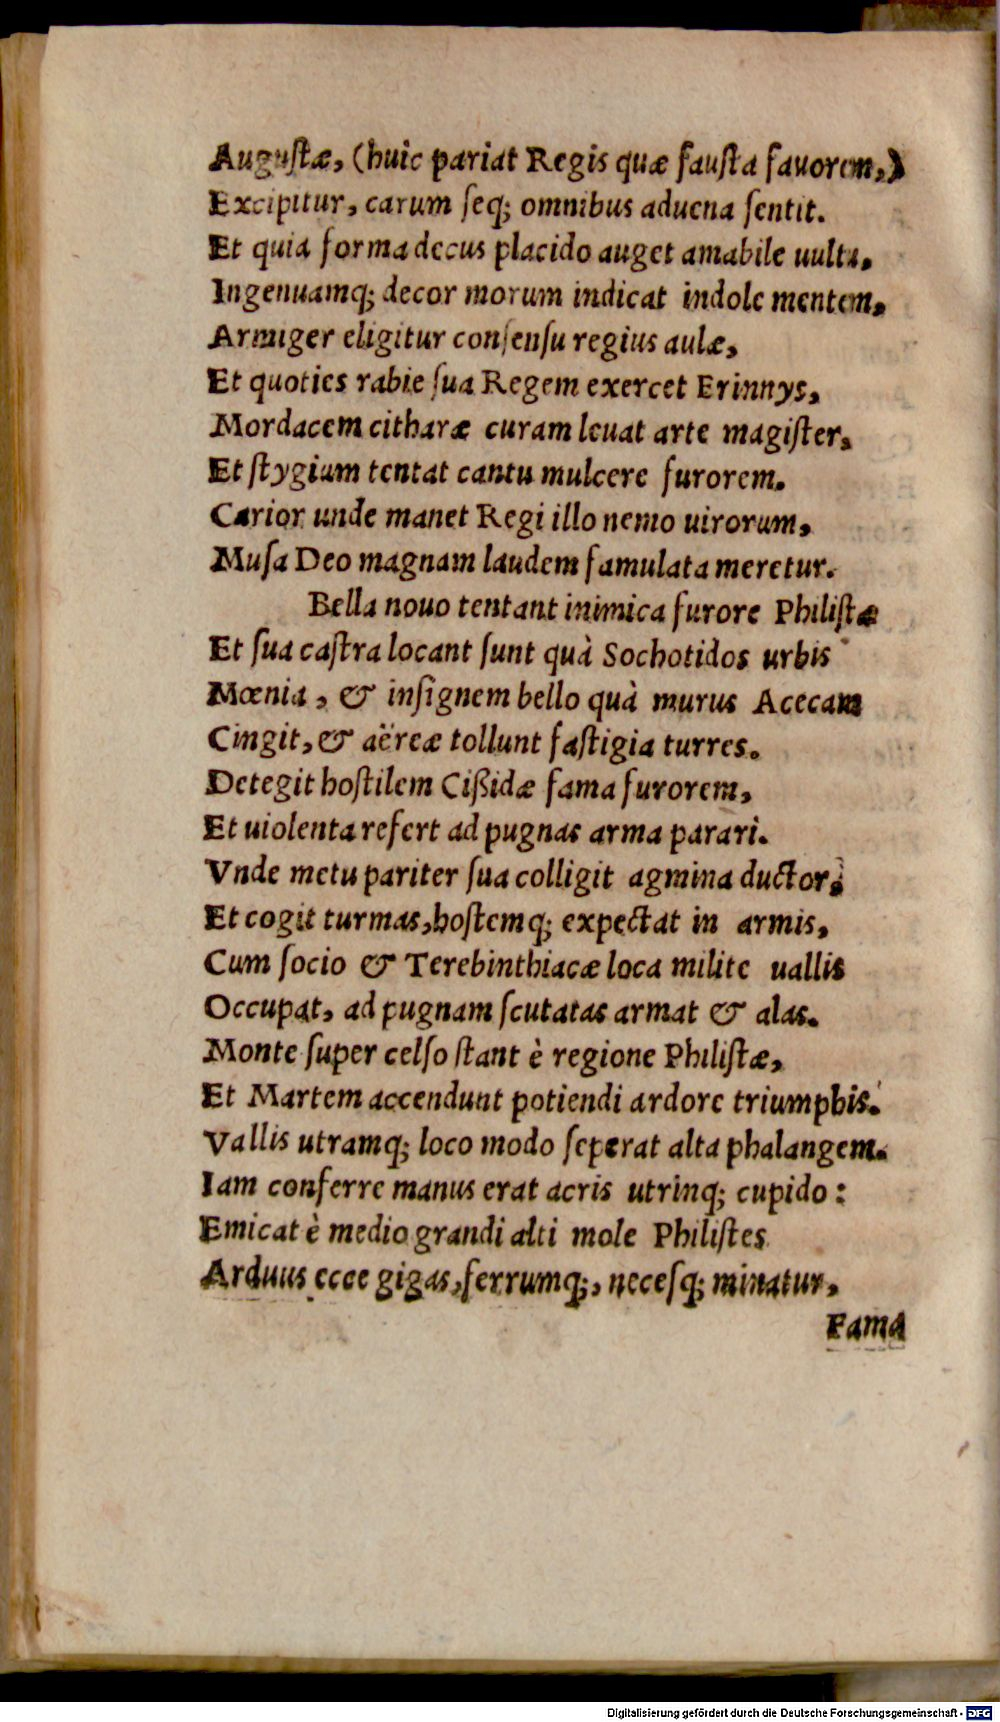 Auguſtæ, (huic pariat Regis quæ fauſta fauorem,)
Excipitur, carum ſeq; omnibus aduena ſentit.
Et quia forma decus placido auget amabile uultu,
Ingenuamq; decor morum indicat indole mentem,
Armiger eligitur conſenſu regius aulæ,
Et quoties rabie ſua Regem exercet Erinnys,
Mordacem citharæ curam leuat arte magiſter,
Et ſtygium tentat cantu mulcere furorem.
Carior unde manet Regi illo nemo uirorum,
Muſa Deo magnam laudem famulata meretur.
Bella nouo tentant inimica furore Philiſtæ
Et ſua caſtra locant ſunt quà Sochotidos urbis
Mœnia, & inſignem bello quà murus Acecam
Cingit, & aëreæ tollunt faſtigia turres.
Detegit hoſtilem Cißidæ fama furorem,
Et uiolenta refert ad pugnas arma parari.
Vnde metu pariter ſua colligit agmina ductor,
Et cogit turmas, hoſtemq; expectat in armis,
Cum ſocio & Terebinthiacæ loca milite uallis
Occupat, ad pugnam ſcutatas armat & alas.
Monte ſuper celſo ſtant è regione Philiſtæ,
Et Martem accendunt potiendi ardore triumphis.
Vallis utramq; loco modo ſeperat alta phalangem.
Iam conferre manus erat acris utrinq; cupido:
Emicat è medio grandi alti mole Philiſtes
Arduus ecce gigas, ferrumq;, neceſq; minatur,
Fama
Digitalisierung gefördert durch die Deutsche Forschungsgemeinschaft - DFG